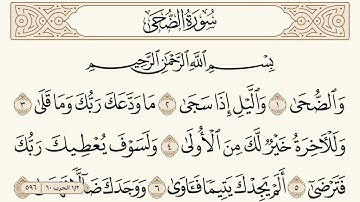 سُورَةُ الضُّحَىٰ
بِسْمِ ٱللَّهِ ٱلرَّحْمَٰنِ ٱلرَّحِيمِ
وَٱلضُّحَىٰ ١ وَٱلَّيْلِ إِذَا سَجَىٰ ٢ مَا وَدَّعَكَ رَبُّكَ وَمَا قَلَىٰ ٣
وَلَلْءَاخِرَةُ خَيْرٌ لَّكَ مِنَ ٱلْأُولَىٰ ٤ وَلَسَوْفَ يُعْطِيكَ رَبُّكَ
فَتَرْضَىٰٓ ٥ أَلَمْ يَجِدْكَ يَتِيمًا فَـَٔاوَىٰ ٦ وَوَجَدَكَ ضَآلًّا
١/٢ الحزب ٦٠ ٥٩٦